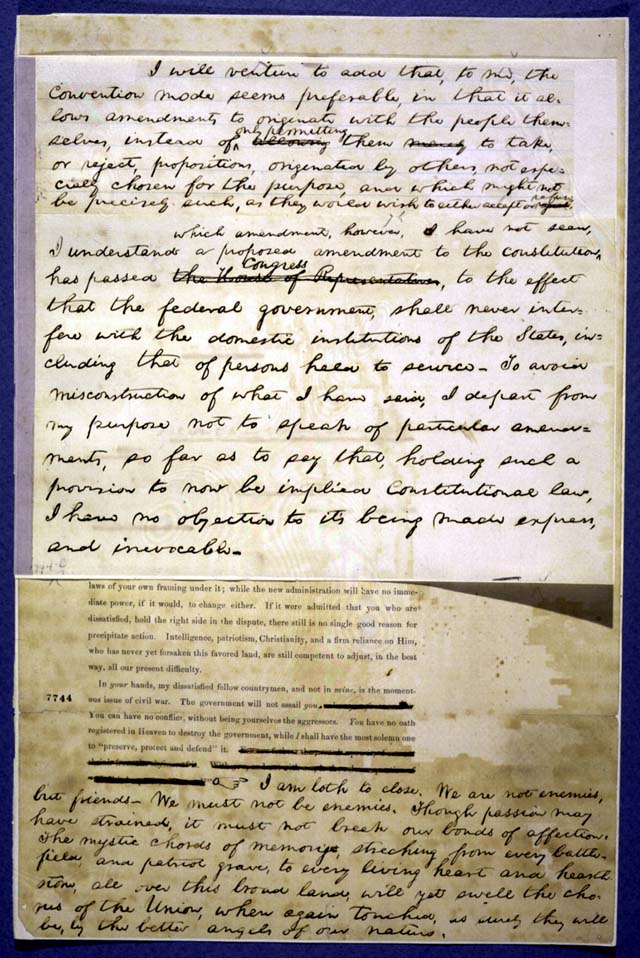 I will venture to add that, to me, the
convention mode seems preferable, in that it al-
lows amendments to originate with the people them-
selves, instead of only permitting allowing them merely to take,
or reject, propositions, originated by others, not espe-
cially chosen for the purpose, and which might not
be precisely such, as they would wish to either accept or refuse
which amendment, however, I have not seen,
I understand a proposed amendment to the constitution,
has passed the House of Representatives, Congress, to the effect
that the federal government, shall never inter-
fere with the domestic institutions of the States, in-
cluding that of persons held to service- To avoid
misconstruction of what I have said, I depart from
my purpose not to speak of particular amend-
ments, so far as to say that, holding such a
provision to now be implied constitutional law,
I have no objection to its being made express,
and irrevocable-
laws of your own framing under it; while the new administration will have no imme-
diate power, if it would, to change either. If it were admitted that you who are
dissatisfied, hold the right side in the dispute, there still is no single good reason for
precipitate action. Intelligence, patriotism, Christianity, and a firm reliance on Him,
who has never yet forsaken this favored land, are still competent to adjust, in the best
way, all our present difficulty.
In your hands, my dissatisfied fellow countrymen, and not in mine, is the moment-
7744 ous issue of civil war. The government will not assail you
You can have no conflict, without being yourselves the aggressors. You have no oath
registered in Heaven to destroy the government, while I shall have the most solemn one
to "preserve, protect and defend" it.
I am loth to close. We are not enemies,
but friends- We must not be enemies. Though passion may
have strained, it must not break our bonds of affection.
The mystic chords of memory, streching from every battle-
field, and patriot grave, to every living heart and hearth-
stone, all over this broad land, will yet swell the cho-
rus of the Union, when again touched, as surely they will
be, by the better angels of our nature.